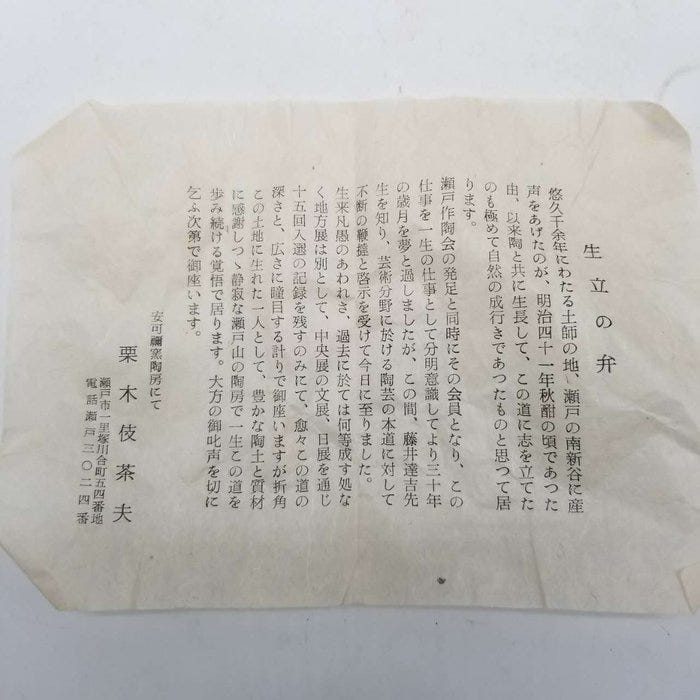 生立の弁
悠久千余年にわたる土師の地、瀬戸の南新谷に産
声をあげたのが、明治四十一年秋酣の頃であつた
由、以来陶と共に生長して、この道に志を立てた
のも極めて自然の成行きであつたものと思つて居
ります。
瀬戸作陶会の発足と同時にその会員となり、この
仕事を一生の仕事として分明意識してより三十年
の歳月を夢と過しましたが、この間、藤井達吉先
生を知り、芸術分野に於ける陶芸の本道に対して
不断の鞭撻と啓示を受けて今日に至りました。
生来凡愚のあわれさ、過去に於ては何等成す処な
く地方展は別として、中央展の文展、日展を通じ
十五回入選の記録を残すのみにて、愈々この道の
深さと、広さに瞳目する計りで御座いますが折角
この土地に生れた一人として、豊かな陶土と質材
に感謝しつゝ静寂な瀬戸山の陶房で一生この道を
歩み続ける覚悟で居ります。大方の御叱声を切に
乞ふ次第で御座います。
安可禰窯陶房にて
栗木伎茶夫
瀬戸市一里塚川合町五四番地
電話瀬戸三〇二四番